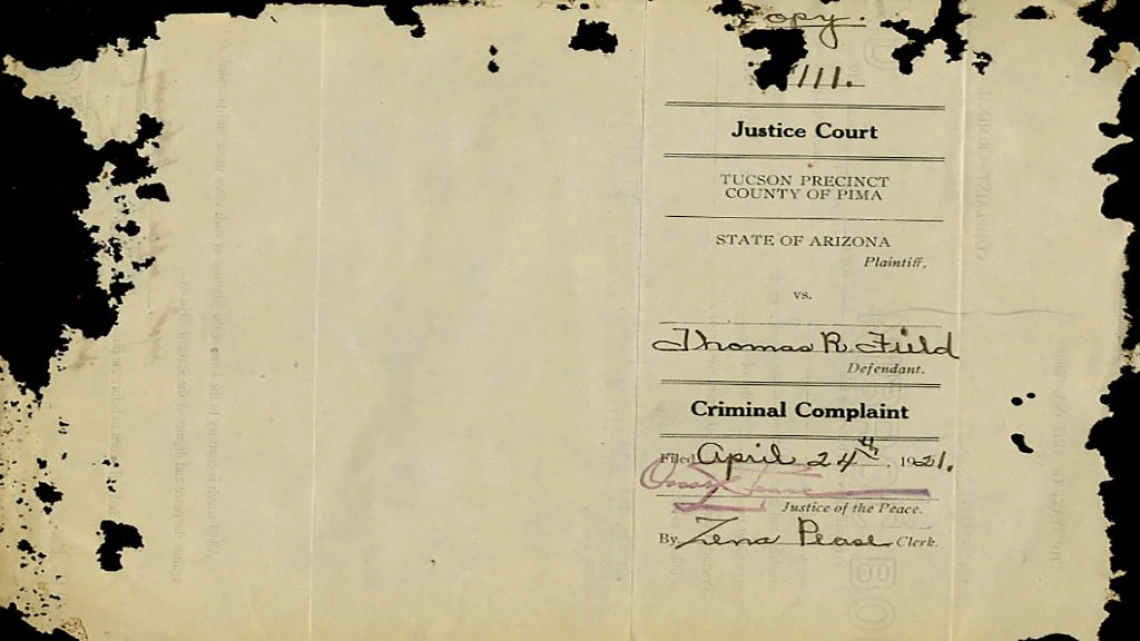 Copy.
111.
Justice Court
TUCSON PRECINCT
COUNTY OF PIMA
STATE OF ARIZONA
Plaintiff,
vs.
Thomas R. Field
Defendant.
Criminal Complaint
Filed April 24th, 1921.
Justice of the Peace.
By Zena Pease Clerk.